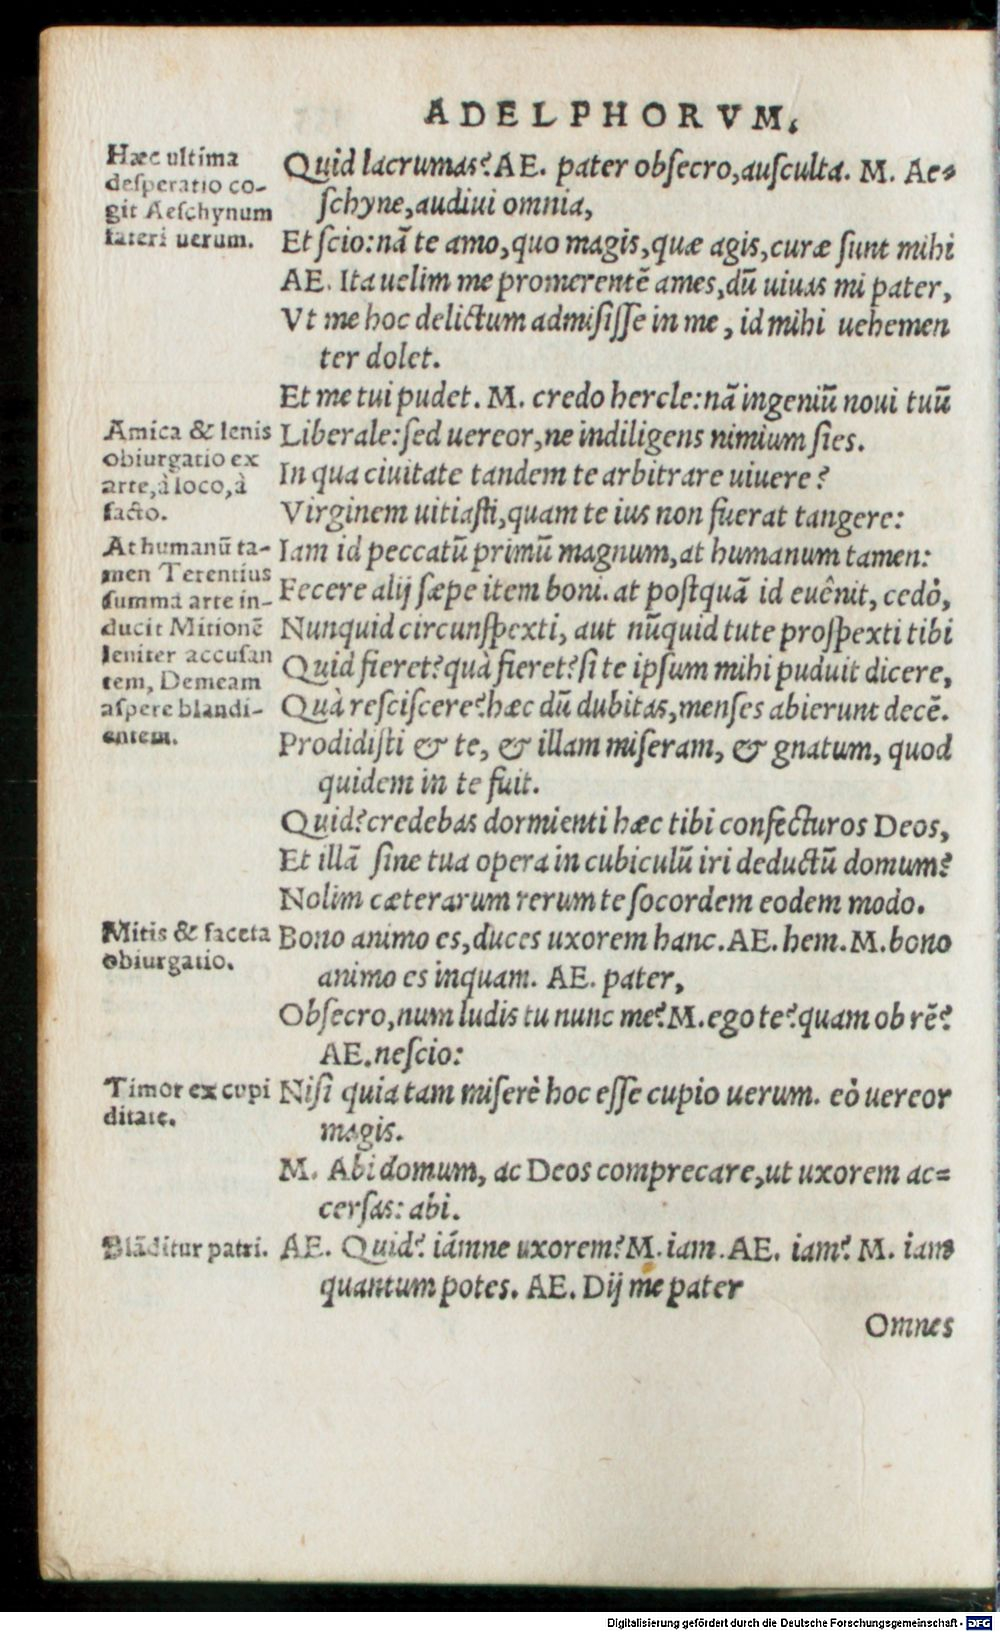 ADELPHORVM.
Hæc ultima
desperatio co-
git Aeschynum
fateri uerum.
Quid lacrumas? AE. pater obsecro, ausculta. M. Ae-
schyne, audiui omnia,
Et scio: nã te amo, quo magis, quæ agis, curæ sunt mihi
AE. Ita uelim me promerentẽ ames, dũ uiuas mi pater,
Vt me hoc delictum admisisse in me, id mihi uehemen
ter dolet.
Et me tui pudet. M. credo hercle: nã ingeniũ noui tuũ
Amica & lenis
obiurgatio ex
arte, à loco, à
facto.
Liberale: sed uereor, ne indiligens nimium sies.
In qua ciuitate tandem te arbitrare uiuere?
Virginem uitiasti, quam te ius non fuerat tangere:
At humanũ ta-
men Terentius
summa arte in-
ducit Mitionẽ
leniter accusan
tem, Demeam
aspere blandi-
entem.
Iam id peccatũ primũ magnum, at humanum tamen:
Fecere alij sæpe item boni. at postquã id euênit, cedò,
Nunquid circunspexti, aut nũquid tute prospexti tibi
Quid fieret? quà fieret? si te ipsum mihi puduit dicere,
Quà resciscere? hæc dũ dubitas, menses abierunt decẽ.
Prodidisti & te, & illam miseram, & gnatum, quod
quidem in te fuit.
Quid? credebas dormienti hæc tibi confecturos Deos,
Et illã sine tua opera in cubiculũ iri deductũ domum?
Nolim cæterarum rerum te socordem eodem modo.
Mitis & faceta
obiurgatio.
Bono animo es, duces uxorem hanc. AE. hem. M. bono
animo es inquam. AE. pater,
Obsecro, num ludis tu nunc me? M. ego te? quam ob rẽ?
AE. nescio:
Timor ex cupi
ditate.
Nisi quia tam miserè hoc esse cupio uerum. eò uereor
magis.
M. Abi domum, ac Deos comprecare, ut uxorem ac=
cersas: abi.
Blãditur patri.
AE. Quid? iámne uxorem? M. iam. AE. iam? M. iam
quantum potes. AE. Dij me pater
Omnes
Digitalisierung gefördert durch die Deutsche Forschungsgemeinschaft - DFG